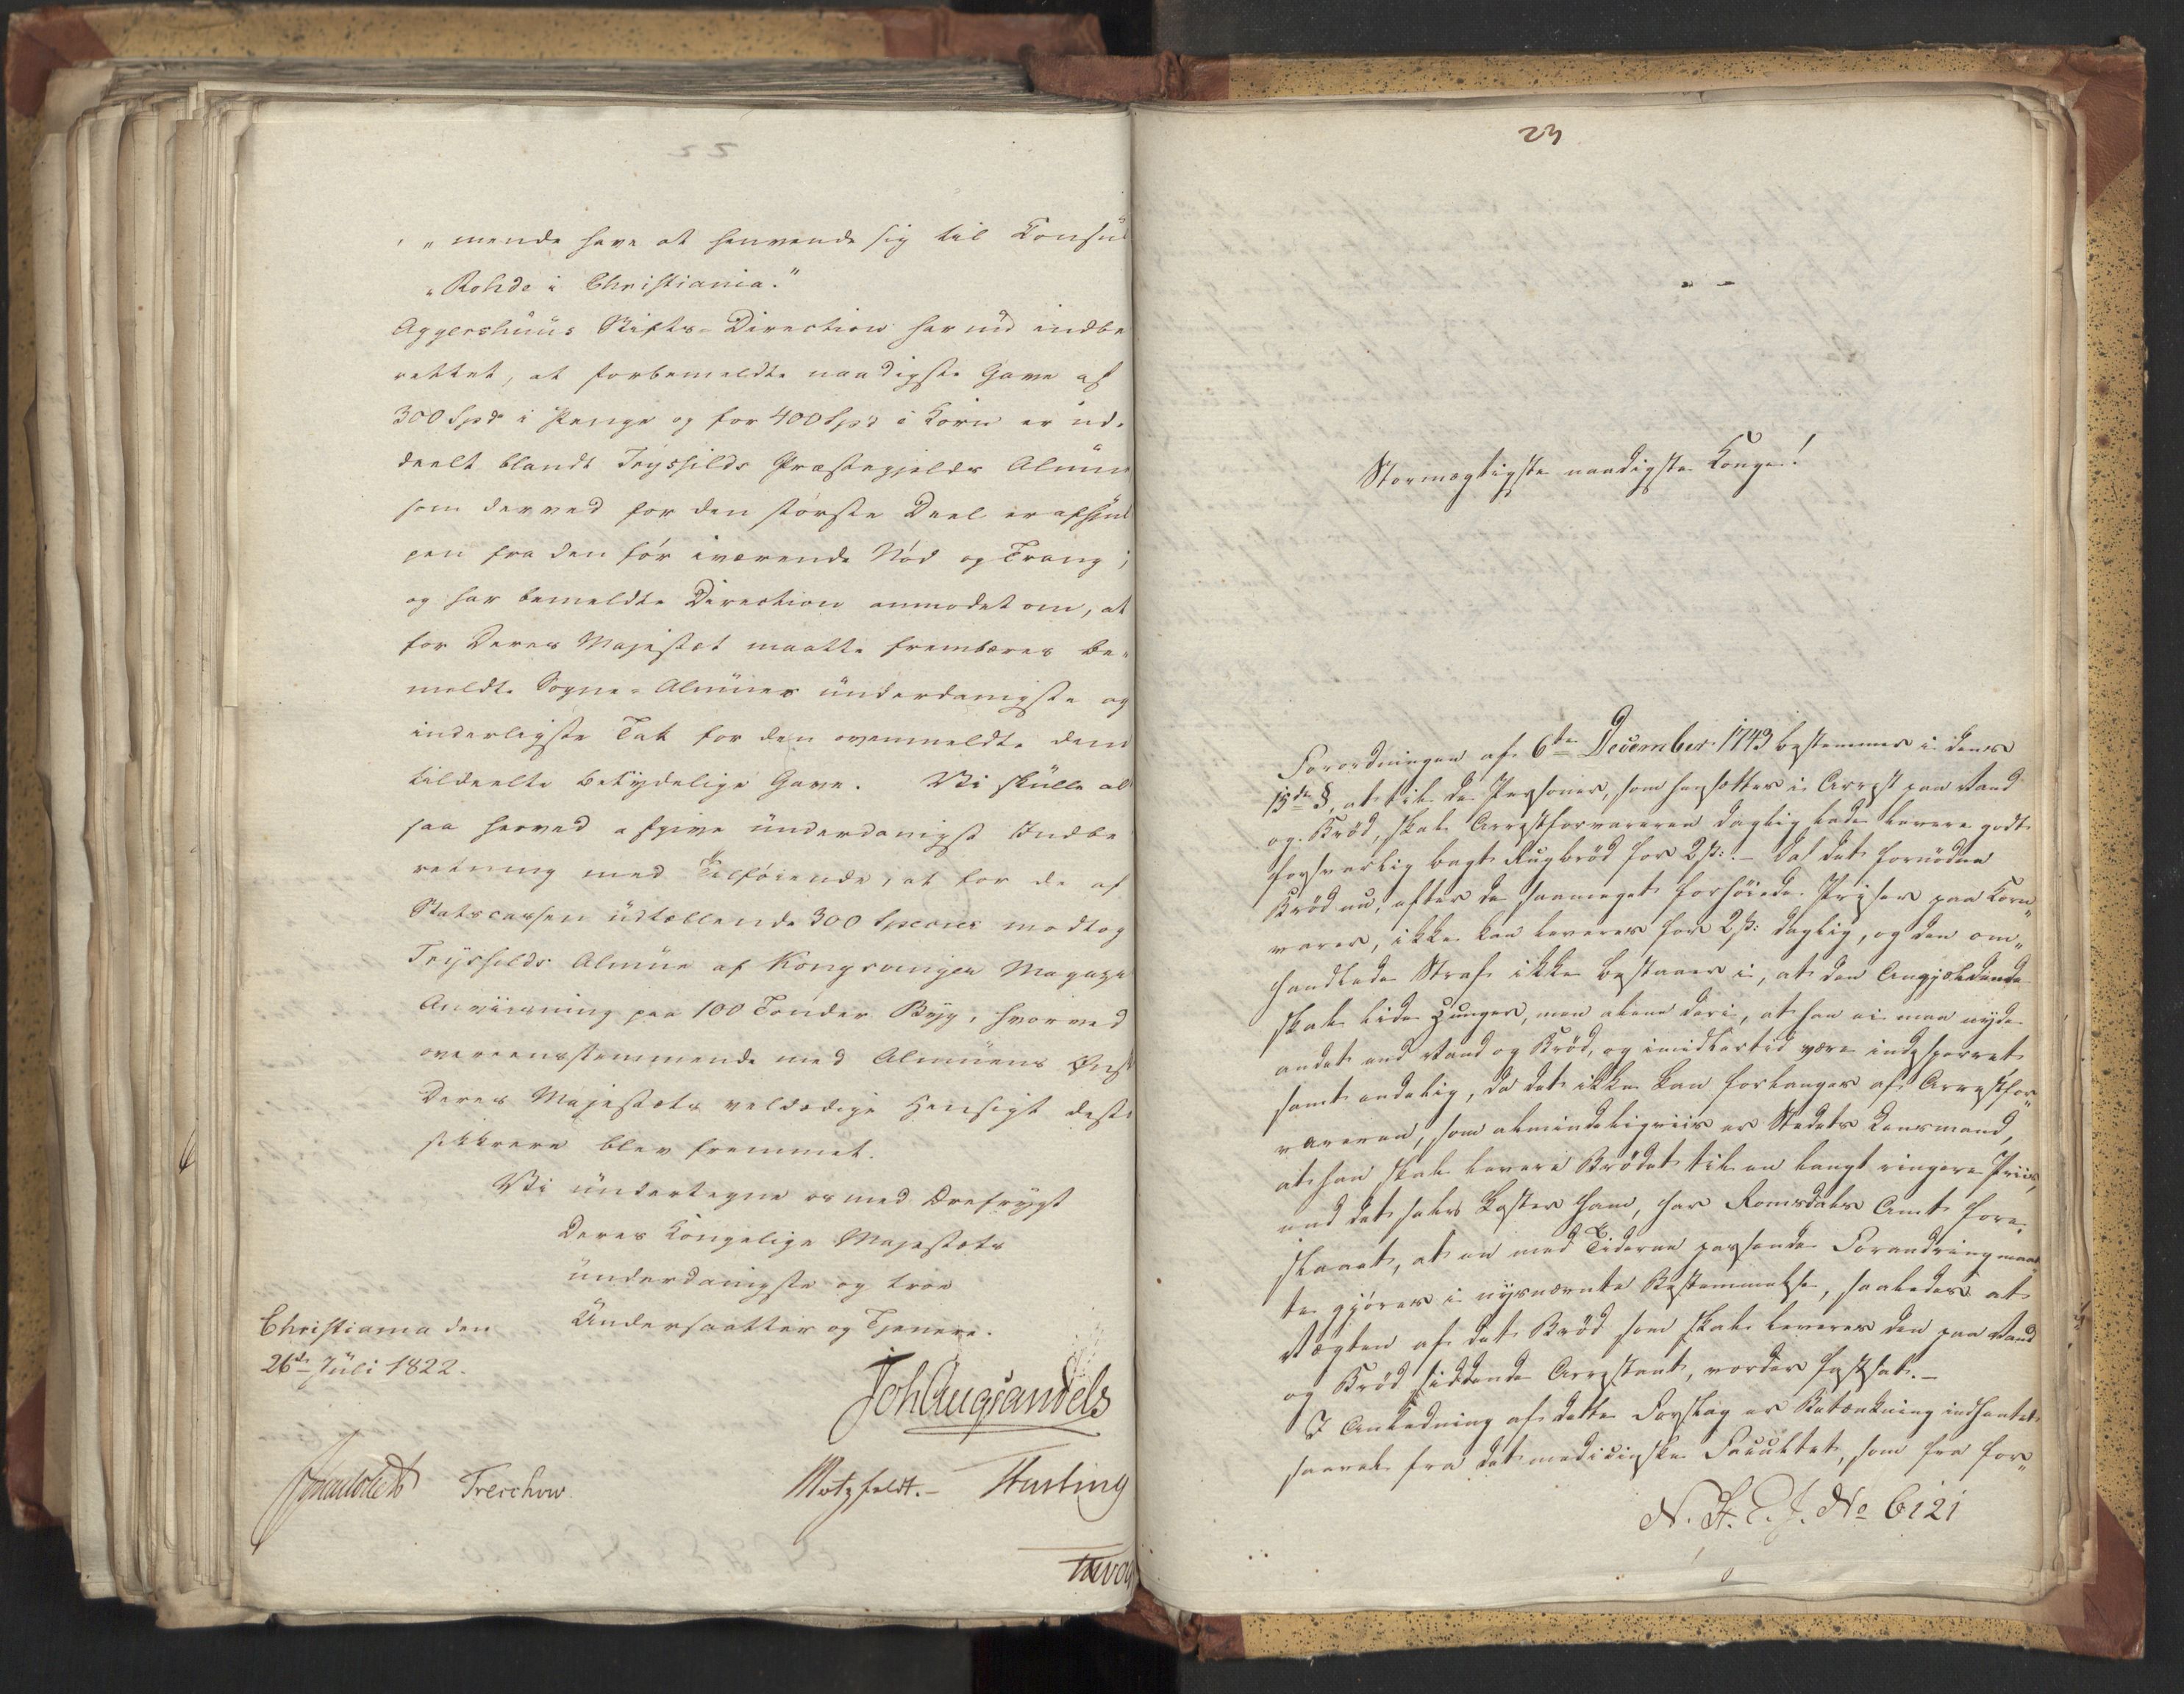 „mende have at henvende sig til Konsul
„Rohde i Christiania.“
Aggershuus Stifts-Direction har nu indbe
rettet, at forbemeldte naadigste Gave af
300 Spd i Penge og for 400 Spd i Korn er ud-
deelt blandt Trysfilds Præstegjelds Almue
som derved for den største Deel er afhjul
pen fra den før iværende Nød og Trang;
og har bemeldte Direction anmodet om, at
for Deres Majestæt maatte frembæres be-
meldte Sogne-Almues underdanigste og
inderligste Tak for den ovenmeldte dem
tildeelte betydelige Gave. Vi skulle al
saa herved afgive underdanigst Indbe
retning med Tilføiende, at for de af
Statscassen udtællende 300 Species modtog
Trysfilds Almue af Kongsvinger Magazin
Anviisning paa 100 Tønder Byg, hvorved
overeensstemmende med Almuens Ønske
Deres Majestæts veldædige Hensigt desto
sikkrere blev fremmet.
Vi undertegne os med Ærefrygt
Deres Kongelige Majestæts
underdanigste og troe
Undersaatter og Tjenere.
Christiania den
26de Juli 1822.
Joh Aug Sandels
Treschow
Motzfeldt.-
23
Stormægtigste naadigste Konge!
Forordningen af 6te December 1743 bestemmer i dens
15de §, at til de Personer, som hensettes i Arrest paa Vand
og Brød, skal Arrestforvareren daglig lade levere godt
forsvarlig bagt Rugbrød for 2 ß:.- Da det fornødne
Brød nu, efter de saameget forhøiede Priser paa Korn„
varer, ikke kan leveres for 2 ß: daglig, og den om„
handlede Straf ikke bestaaer i, at den Angjældende
skal lide Hunger, men alene deri, at han ei maa nyde
andet end Vand og Brød, og imidlertid være indspærret,
samt endelig, da det ikke kan forlanges af Arrestfor„
vareren, som almindeligviis er Stedets Lensmand,
at han skal levere Brødet til en langt ringere Priis,
end det selv koster ham, har Romsdals Amt fore-
slaaet, at en med Tiderne passende Forandring maat„
te gjøres i nysnævnte Bestemmelse, saaledes at
Vægten af det Brød som skal leveres den paa Vand
og Brød siddende Arrestant, vorder fastsat.-
I Anledning af dette Forslag er Betænkning indhentet
saavel fra det medicinske Facultet, som fra for„
No 6121